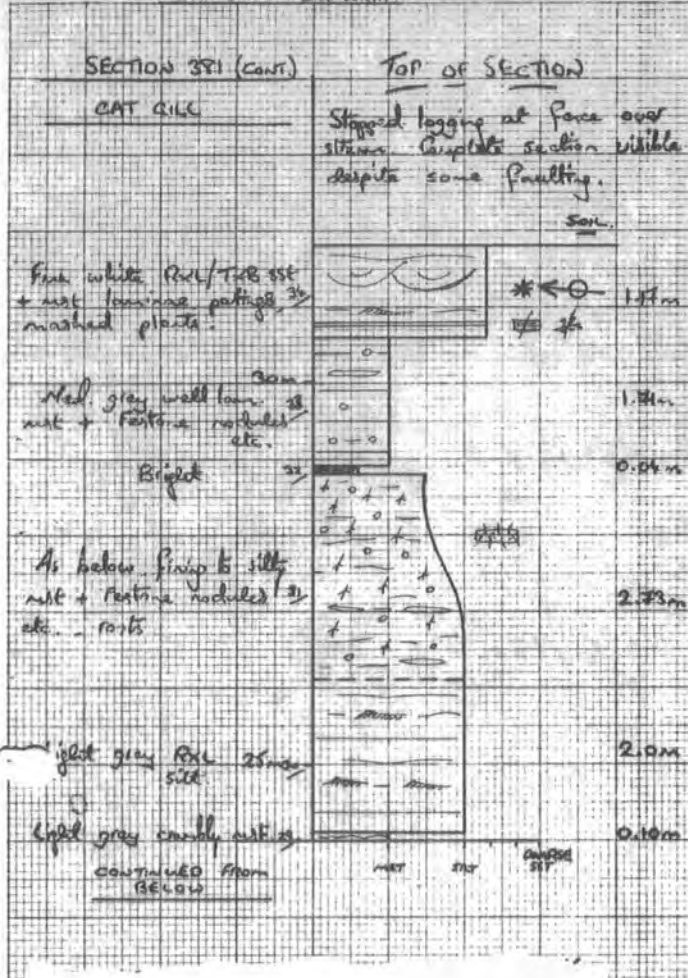 SECTION 381 (CONT.)
CAT GILL
TOP OF SECTION
Stopped logging at force over
stream. Complete section visible
despite some faulting.
SOIL.
Fine white RXL/TXB SST
+ mst laminae partings
mashed plants.
1.17m
30m
Med. gray well lam.
mst + Festone nodules
etc.
1.74m
Bright
32
0.04m
As below fining to silty
mst + Festone nodules
etc. - roots
31
2.73m
Light gray RXL
silt
25m
2.0m
Light gray crumbly mst.
0.10m
CONTINUED FROM
BELOW
MST
SILT
COARSE